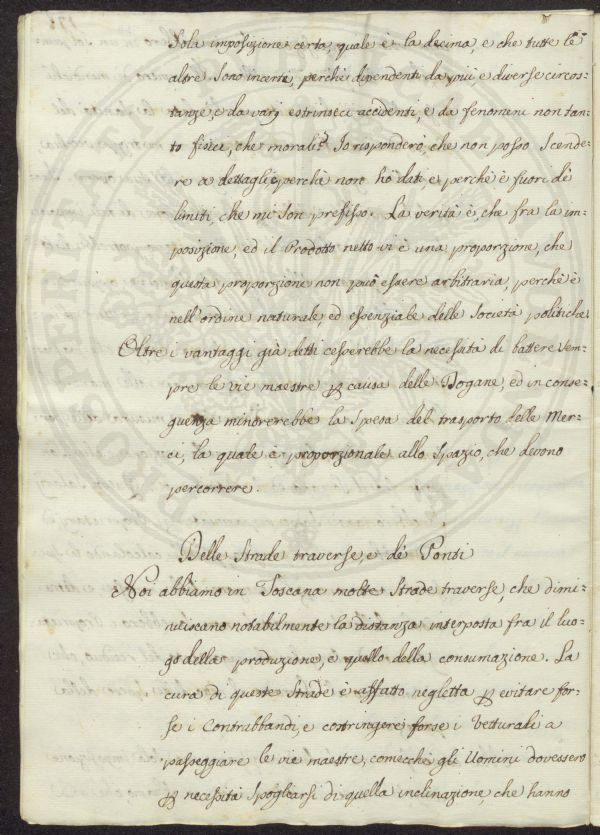 Sola imposizione certa, quale è la decima, e che tutte le
altre sono incerte, perchè dipendenti da più, e diverse circos-
tanze, e da varj estrinseci accidenti, e da fenomini non tan-
to fisici, che morali? Io risponderò, che non posso scende-
re a dettagli, perchè non hò dati, e perchè è fuori dè
limiti, che mi son prefisso. La verità è, che fra la im-
posizione, ed il Prodotto netto vi è una proporzione, che
questa proporzione non può essere arbitraria, perchè è
nell'ordine naturale, ed essenziale delle Società politiche
Oltre i vantaggi già detti cesserebbe la necessità di battere sem-
pre le vie maestre p causa delle Dogane, ed in conse-
guenza minorerebbe la spesa del trasporto delle Mer-
ci, la quale è proporzionale allo spazio, che devono
percorrere.
Delle Strade traverse, e dè Ponti
Noi abbiamo in Toscana molte Strade traverse, che dimi-
nuiscano notabilmente la distanza interposta fra il luo-
go della produzione, e quello della consumazione. La
cura di queste Strade è affatto negletta p evitare for-
se i Contrabbandi, e costringere forse i Vetturali a
passeggiare le vie maestre, comecchè gli Uomini dovessero
p necessità spogliarsi di quella inclinazione, che hanno